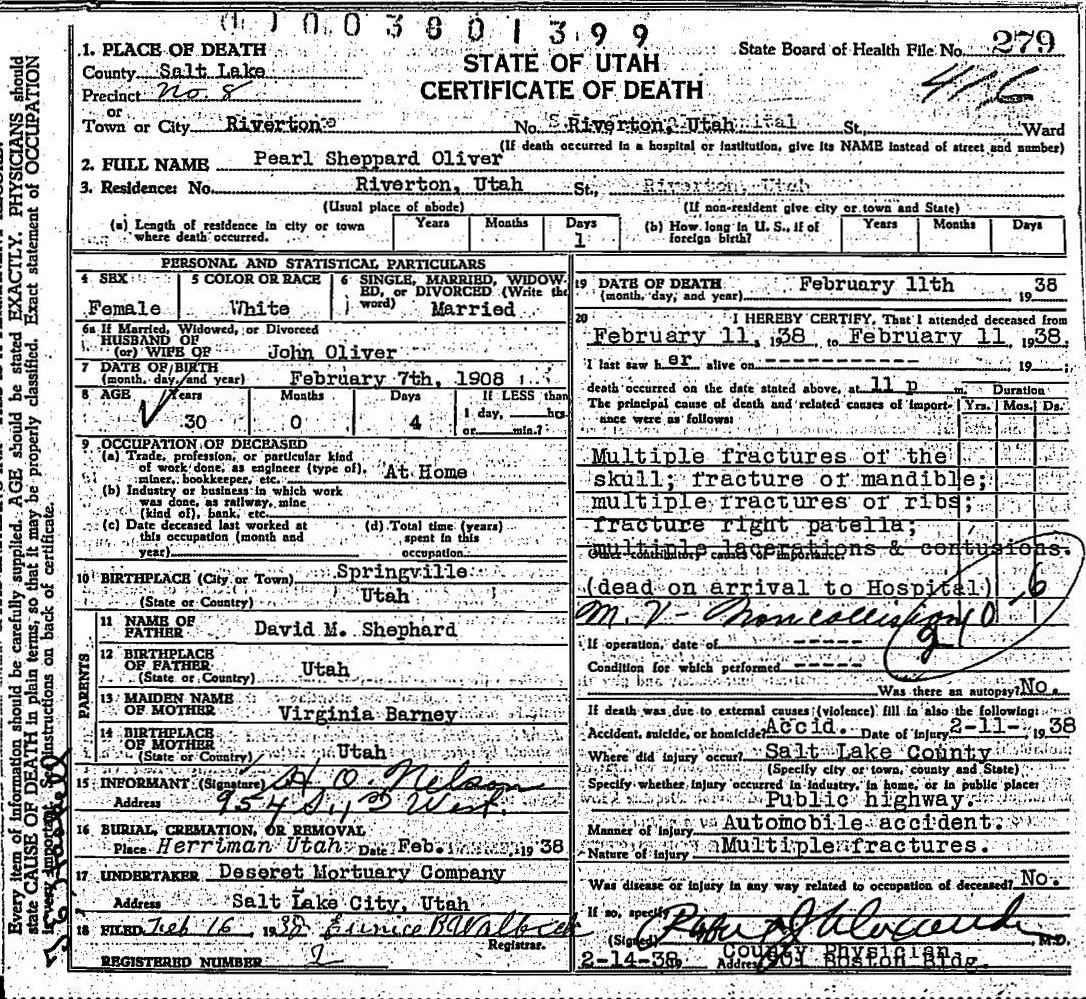 0003801399
1. PLACE OF DEATH
County Salt Lake
Precinct No. 8
or
Town or City Riverton
STATE OF UTAH
CERTIFICATE OF DEATH
State Board of Health File No. 279
416
No. Riverton, Utah St., Ward
(If death occurred in a hospital or institution, give its NAME instead of street and number)
2. FULL NAME Pearl Sheppard Oliver
3. Residence: No. Riverton, Utah St., Riverton, Utah
(Usual place of abode) (If non-resident give city or town and State)
(a) Length of residence in city or town where death occurred. Years Months Days 1
(b) How long in U. S., if of foreign birth? Years Months Days
PERSONAL AND STATISTICAL PARTICULARS
4 SEX Female
5 COLOR OR RACE White
6 SINGLE, MARRIED, WIDOWED, or DIVORCED (Write the word) Married
6a If Married, Widowed, or Divorced
HUSBAND OF
(or) WIFE OF John Oliver
7 DATE OF BIRTH
(month, day, and year) February 7th, 1908
8 AGE Years 30 Months 0 Days 4 If LESS than 1 day, hrs. or min.?
9 OCCUPATION OF DECEASED
(a) Trade, profession, or particular kind
of work done, as engineer (type of),
miner, bookkeeper, etc. At Home
(b) Industry or business in which work
was done, as railway, mine
(kind of), bank, etc.
(c) Date deceased last worked at
this occupation (month and
year)
(d) Total time (years)
spent in this
occupation
10 BIRTHPLACE (City or Town) Springville
(State or Country) Utah
PARENTS
11 NAME OF
FATHER David M. Shephard
12 BIRTHPLACE
OF FATHER Utah
(State or Country)
13 MAIDEN NAME
OF MOTHER Virginia Barney
14 BIRTHPLACE
OF MOTHER Utah
(State or Country)
15 INFORMANT (Signature) H. O. Nelson
Address 954 S 11th West.
16 BURIAL, CREMATION, OR REMOVAL
Place Herriman Utah Date Feb. 1938
17 UNDERTAKER Deseret Mortuary Company
Address Salt Lake City, Utah
18 FILED Feb 16 1938 Eunice B
Registrar.
REGISTERED NUMBER 2
19 DATE OF DEATH February 11th 1938
(month, day, and year)
20 I HEREBY CERTIFY, That I attended deceased from
February 11, 1938, to February 11, 1938,
I last saw her alive on ---------- 19 ;
death occurred on the date stated above, at 11 p m. Duration
The principal cause of death and related causes of importance were as follows: Yrs. Mos. Ds.
Multiple fractures of the
skull; fracture of mandible;
multiple fractures of ribs;
fracture right patella;
multiple lacerations & contusions.
(dead on arrival to Hospital)
M. V- Noncollision 210-6
If operation, date of -----
Condition for which performed -----
Was there an autopsy? No.
If death was due to external causes (violence) fill in also the following:
Accident, suicide, or homicide? Accid. Date of injury 2-11- 1938
Where did injury occur? Salt Lake County
(Specify city or town, county and State)
Specify whether injury occurred in industry, in home, or in public place:
Public highway.
Manner of injury Automobile accident.
Nature of injury Multiple fractures.
Was disease or injury in any way related to occupation of deceased? No.
If so, specify
(Signed) M.D.
County Physician
2-14-38 Address 901 Boston Bldg.
Every item of information should be carefully supplied. AGE should be stated EXACTLY. PHYSICIANS should
state CAUSE OF DEATH in plain terms, so that it may be properly classified. Exact statement of OCCUPATION
is very important. See instructions on back of certificate.